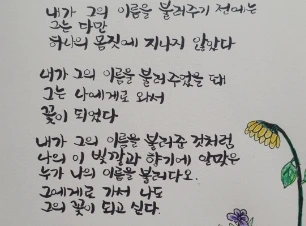 내가 그의 이름을 불러주기 전에는
그는 다만
하나의 몸짓에 지나지 않았다
내가 그의 이름을 불러주었을 때
그는 나에게로 와서
꽃이 되었다
내가 그의 이름을 불러준 것처럼
나의 이 빛깔과 향기에 알맞은
누가 나의 이름을 불러다오.
그에게로 가서 나도
그의 꽃이 되고 싶다.